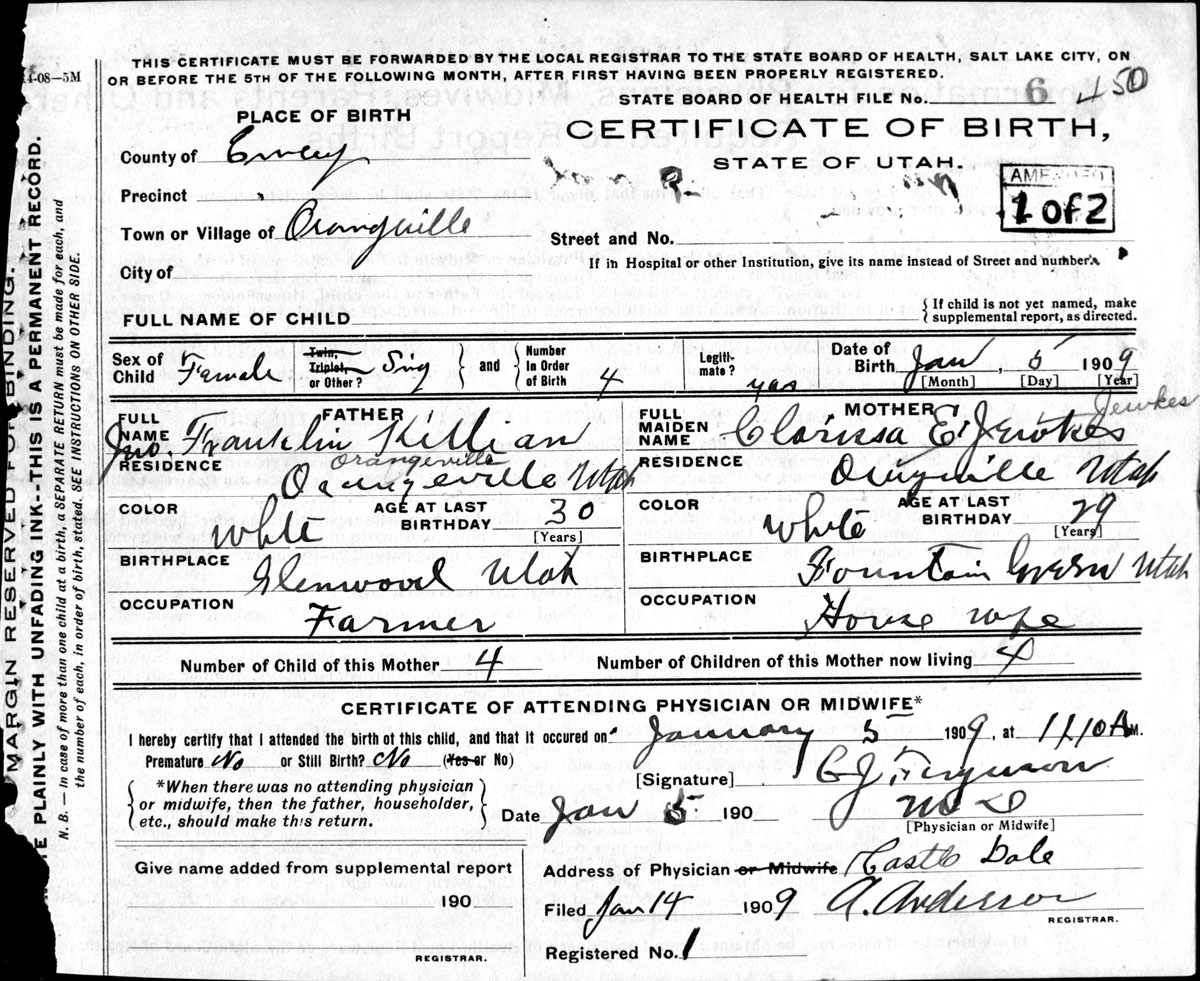 THIS CERTIFICATE MUST BE FORWARDED BY THE LOCAL REGISTRAR TO THE STATE BOARD OF HEALTH, SALT LAKE CITY, ON
OR BEFORE THE 5TH OF THE FOLLOWING MONTH, AFTER FIRST HAVING BEEN PROPERLY REGISTERED.
4-08—5M
STATE BOARD OF HEALTH FILE No. 6 450
PLACE OF BIRTH
CERTIFICATE OF BIRTH,
STATE OF UTAH.
AMENDED
1 of 2
County of Emery
Precinct
Town or Village of Orangville
Street and No.
City of
If in Hospital or other Institution, give its name instead of Street and number.
FULL NAME OF CHILD
If child is not yet named, make
supplemental report, as directed.
Sex of Child Female
Twin, Triplet, or Other? Sing
and
Number In Order of Birth 4
Legiti-mate? yes
Date of Birth Jan 5 1909
[Month] [Day] [Year]
FATHER
FULL NAME Jno. Franklin Killian
MOTHER
FULL MAIDEN NAME Clarissa E. Jewkes
Jewkes
RESIDENCE Orangeville Utah
Orangeville
RESIDENCE Orangville Utah
COLOR White
AGE AT LAST BIRTHDAY 30
[Years]
COLOR White
AGE AT LAST BIRTHDAY 29
[Years]
BIRTHPLACE Glenwood Utah
BIRTHPLACE Fountain Green Utah
OCCUPATION Farmer
OCCUPATION House wife
Number of Child of this Mother 4
Number of Children of this Mother now living 4
CERTIFICATE OF ATTENDING PHYSICIAN OR MIDWIFE*
I hereby certify that I attended the birth of this child, and that it occured on January 5 1909, at 11.10 A M.
Premature No or Still Birth? No (Yes or No)
[Signature] C J Ferguson
*When there was no attending physician
or midwife, then the father, householder,
etc., should make this return.
Date Jan 5 190
M D
[Physician or Midwife]
Give name added from supplemental report
190
REGISTRAR.
Address of Physician or Midwife Castle Dale
Filed Jan 14 1909 A. Anderson
REGISTRAR.
Registered No. 1
MARGIN RESERVED FOR BINDING.
PLAINLY WITH UNFADING INK--THIS IS A PERMANENT RECORD.
N. B. — In case of more than one child at a birth, a SEPARATE RETURN must be made for each, and
the number of each, in order of birth, stated. SEE INSTRUCTIONS ON OTHER SIDE.